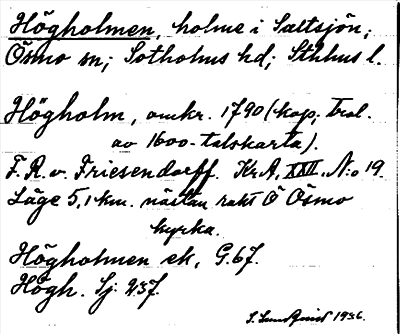 Högholmen, holme i Saltsjön;
Ösmo sn; Sotholms hd; Sthlms l.
Högholm, omkr. 1790 (kop; trol.
av 1600-talskarta).
F. R. v. Friesendorff. KrA, XXII, N:o 19.
Läge 5,1 km. nästan rakt Ö Ösmo
kyrka.
Högholmen ek. G.67.
Högh. Sj. 937.
S. Sundqvist 1936.